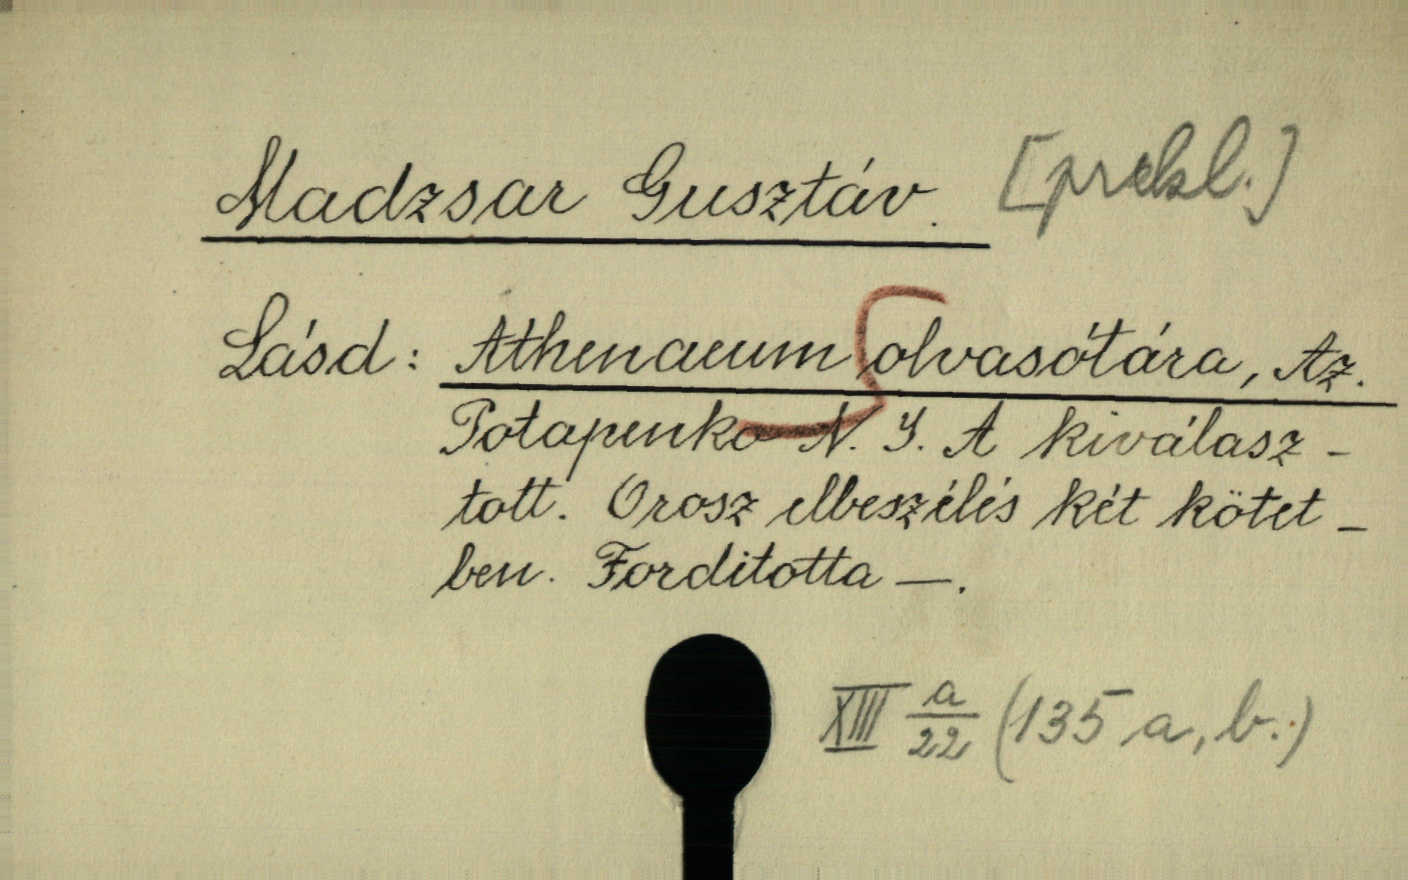 Madzsar Gusztáv. [prekl.]
Lásd: Athenaeum olvasótára, Az.
Potapenko N. I. A kiválasz-
tott. Orosz elbeszélés két kötet-
ben. Forditotta —.
XIII a/22 (135 a, b.)